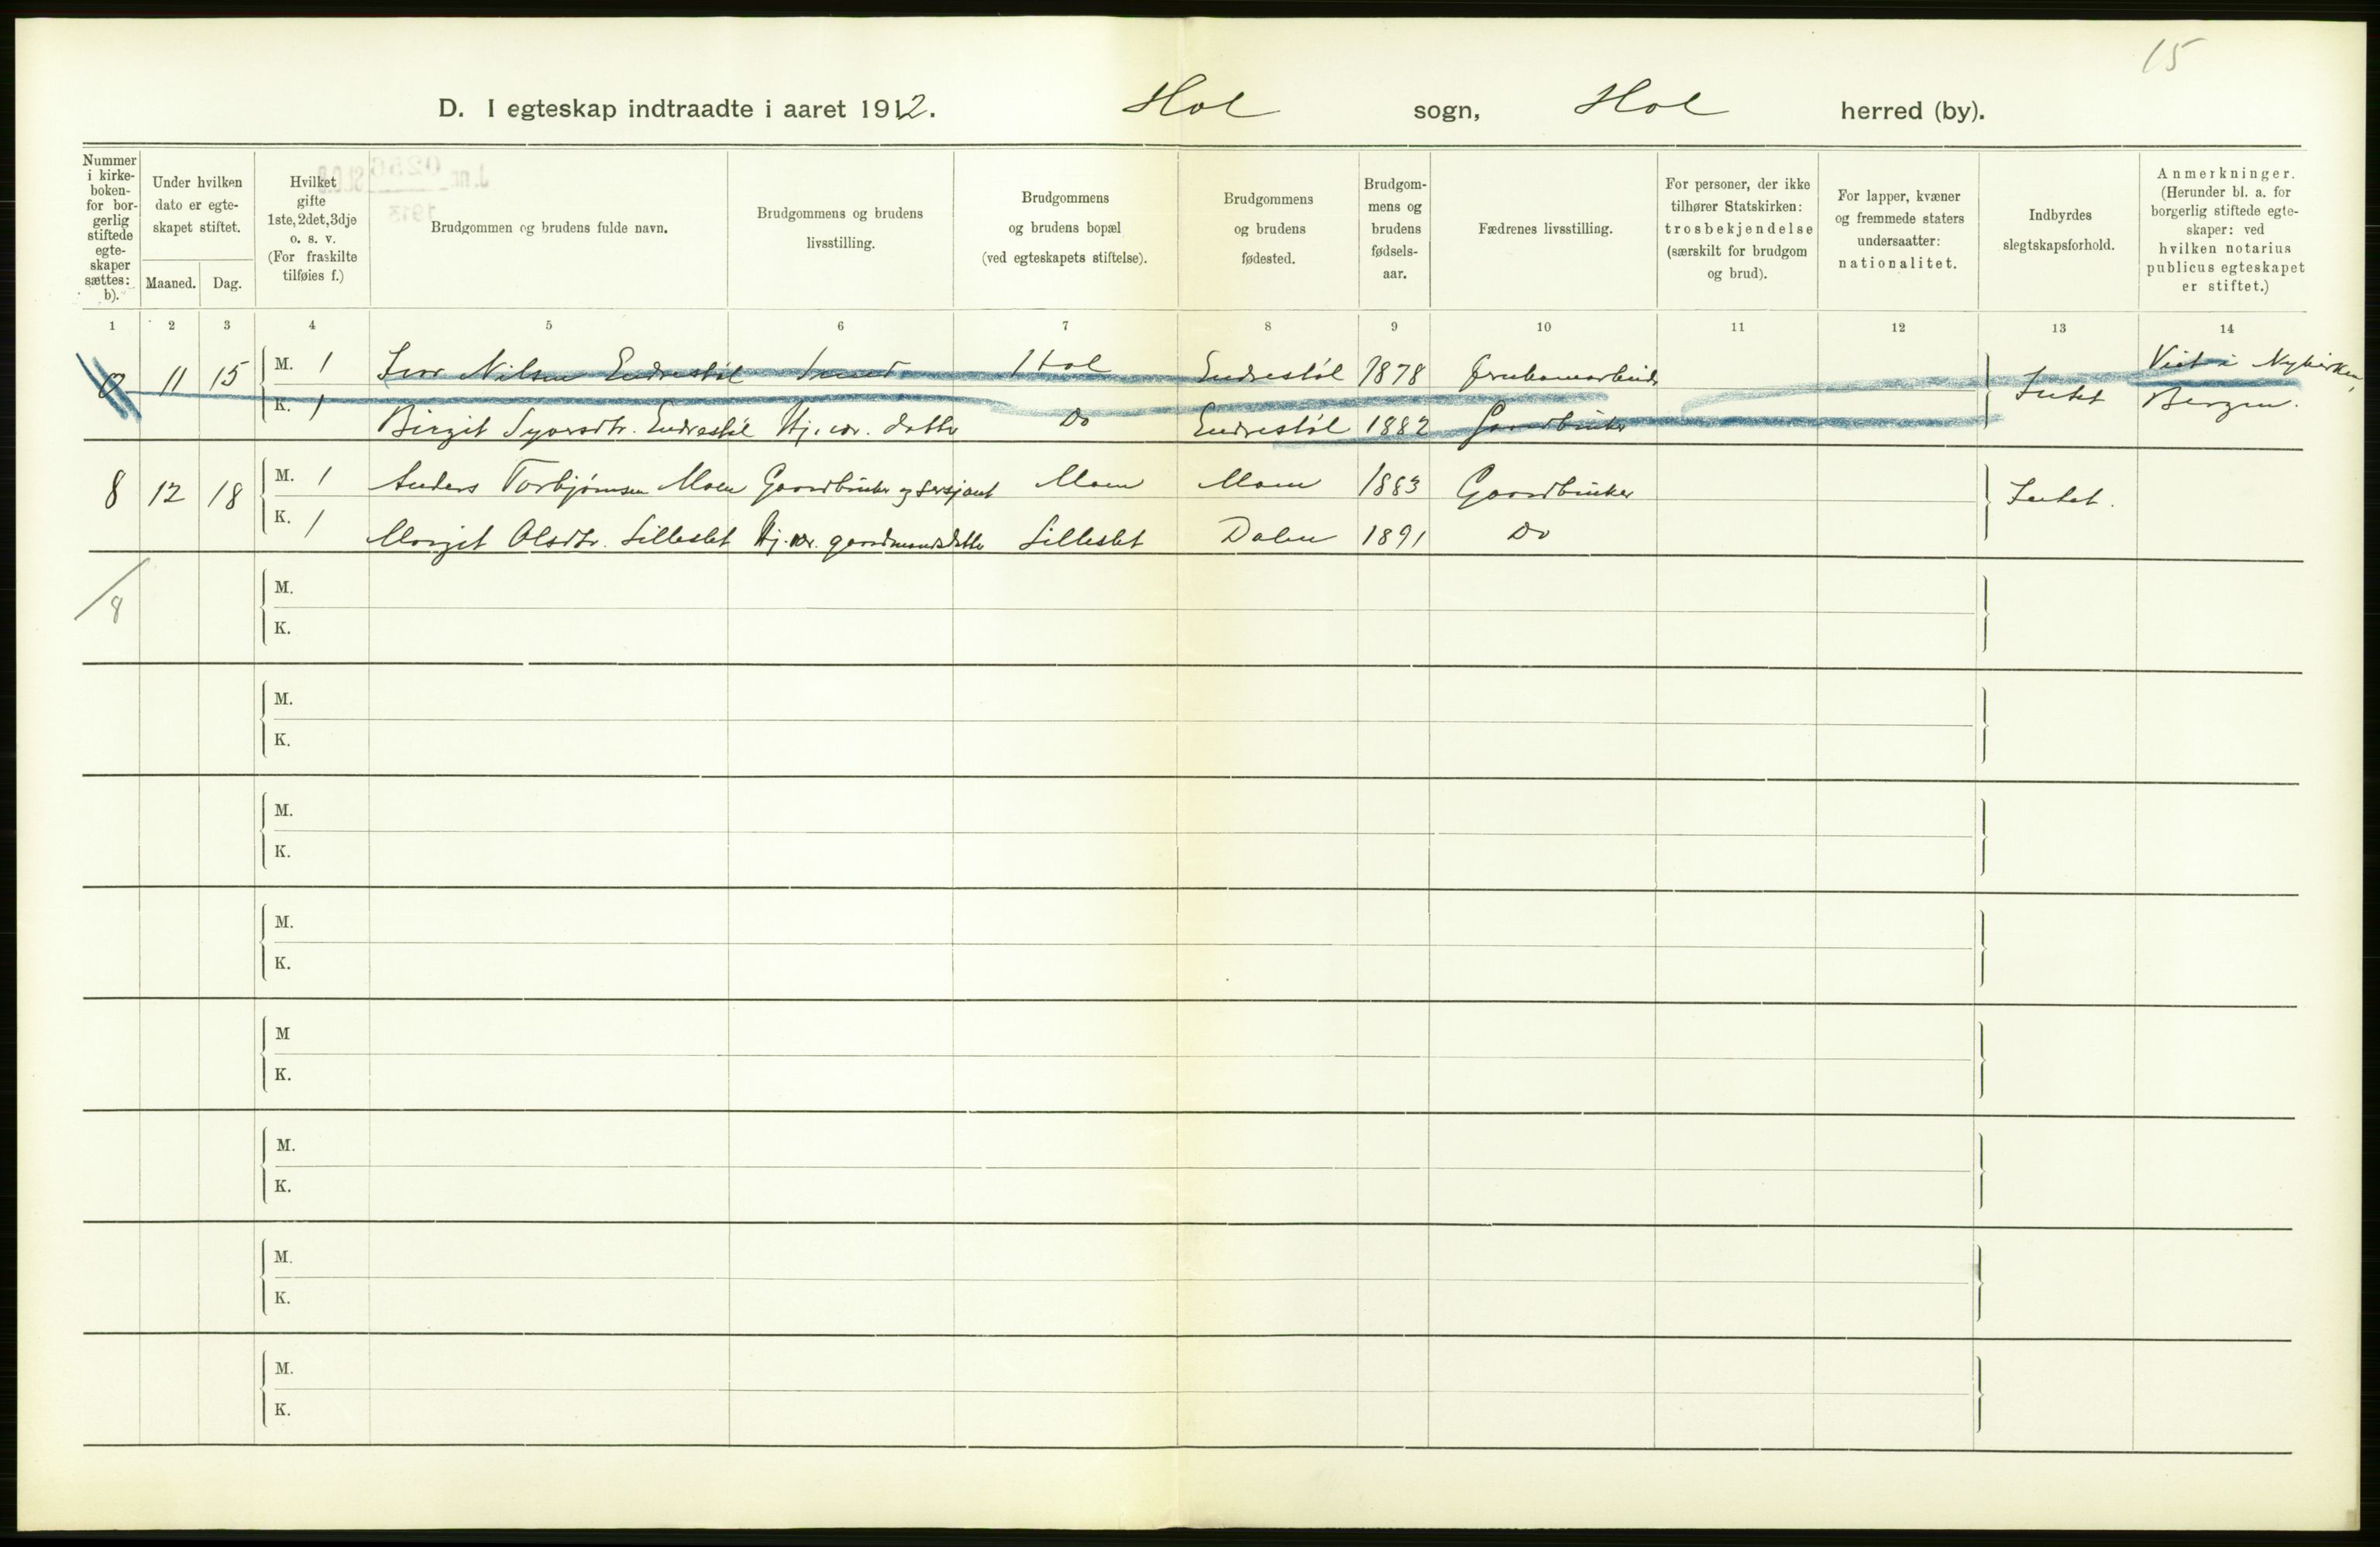 15
D. I egteskap indtraadte i aaret 1912. Hol sogn, Hol herred (by).
Nummer i kirke-boken- for bor-gerlig stiftede egte-skaper sættes: b).
Under hvilken dato er egte-skapet stiftet.
Maaned. Dag.
Hvilket gifte 1ste, 2det, 3dje o. s. v. (For fraskilte tilføies f.)
Brudgommen og brudens fulde navn.
Brudgommens og brudens livsstilling.
Brudgommens og brudens bopæl (ved egteskapets stiftelse).
Brudgommens og brudens fødested.
Brudgom-mens og brudens fødsels-aar.
Fædrenes livsstilling.
For personer, der ikke tilhører Statskirken: trosbekjendelse (særskilt for brudgom og brud).
For lapper, kvæner og fremmede staters undersaatter: nationalitet.
Indbyrdes slegtskapsforhold.
Anmerkninger. (Herunder bl. a. for borgerlig stiftede egte-skaper: ved hvilken notarius publicus egteskapet er stiftet.)
1 2 3 4 5 6 7 8 9 10 11 12 13 14
0 11 15 M. 1 Ivar Nilsen Endrestøl Smed Hol Endrestøl 1878 Intet Viet i Nykirken,
K. 1 Birgit Syversdtr. Endrestøl Hj. vær. datter Do Endrestøl 1882 Gaardbruker Bergen.
8 12 18 M. 1 Anders Torbjørnsen Moen Gaardbruker og sersjant Moen Moen 1883 Gaardbruker Intet.
K. 1 Margit Olsdtr. Lilleslet Hj. vær. gaardmandsdatter Lilleslet Dalen 1891 Do
/8
M.
K.
M.
K.
M.
K.
M.
K.
M
K.
M.
K.
M.
K.
M.
K.